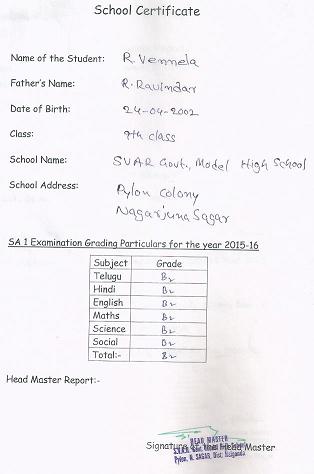 School Certificate
Name of the Student: R. Vennela
Father's Name: R. Ravindar
Date of Birth: 24-04-2002
Class: 9th class
School Name: SVAR Govt., Model High School
School Address: Pylon Colony
Nagarjuna Sagar
SA 1 Examination Grading Particulars for the year 2015-16
Subject Grade
Telugu B2
Hindi B2
English B2
Maths B2
Science B2
Social B2
Total:- B2
Head Master Report:-
Signature of the Head Master
HEAD MASTER
Pylon, N. SAGAR, Dist: Nalgonda